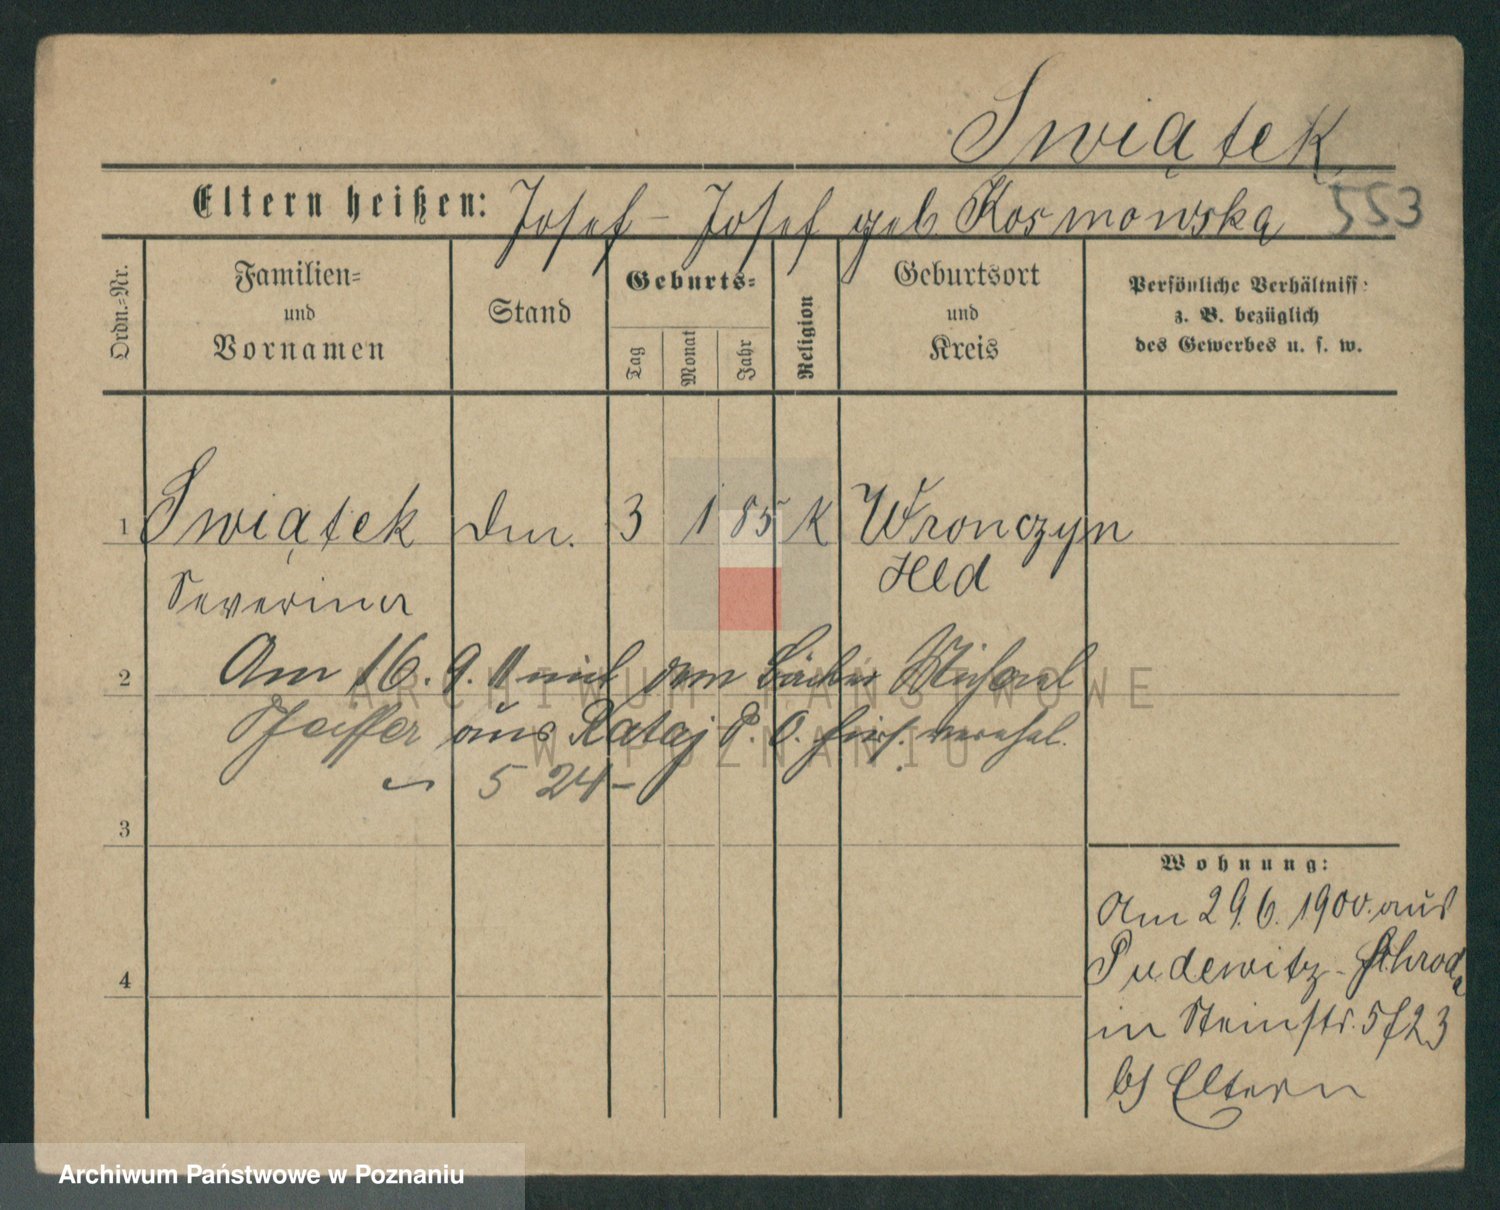 Swiątek
553
Eltern heißen: Josef - Josef geb Kosmowska
Ordn.=Nr.
Familien=
und
Vornamen
Stand
Geburts=
Tag
Monat
Jahr
Religion
Geburtsort
und
Kreis
Persönliche Verhältniss:
z. B. bezüglich
des Gewerbes u. s. w.
1 Swiątek 3 1 85 K Wronczyn
Severina
Am 16. 9. 11 mit dem Bäcker Michael
2
Pfeiffer aus Rataj P. O. hier. verehel.
5 24-
3
Wohnung:
Am 29. 6. 1900. aus
Pudewitz - Schroda
in Steinstr. 5 f 23
bs Eltern
4
ARCHIWUM PAŃSTWOWE
W POZNANIU
Archiwum Państwowe w Poznaniu